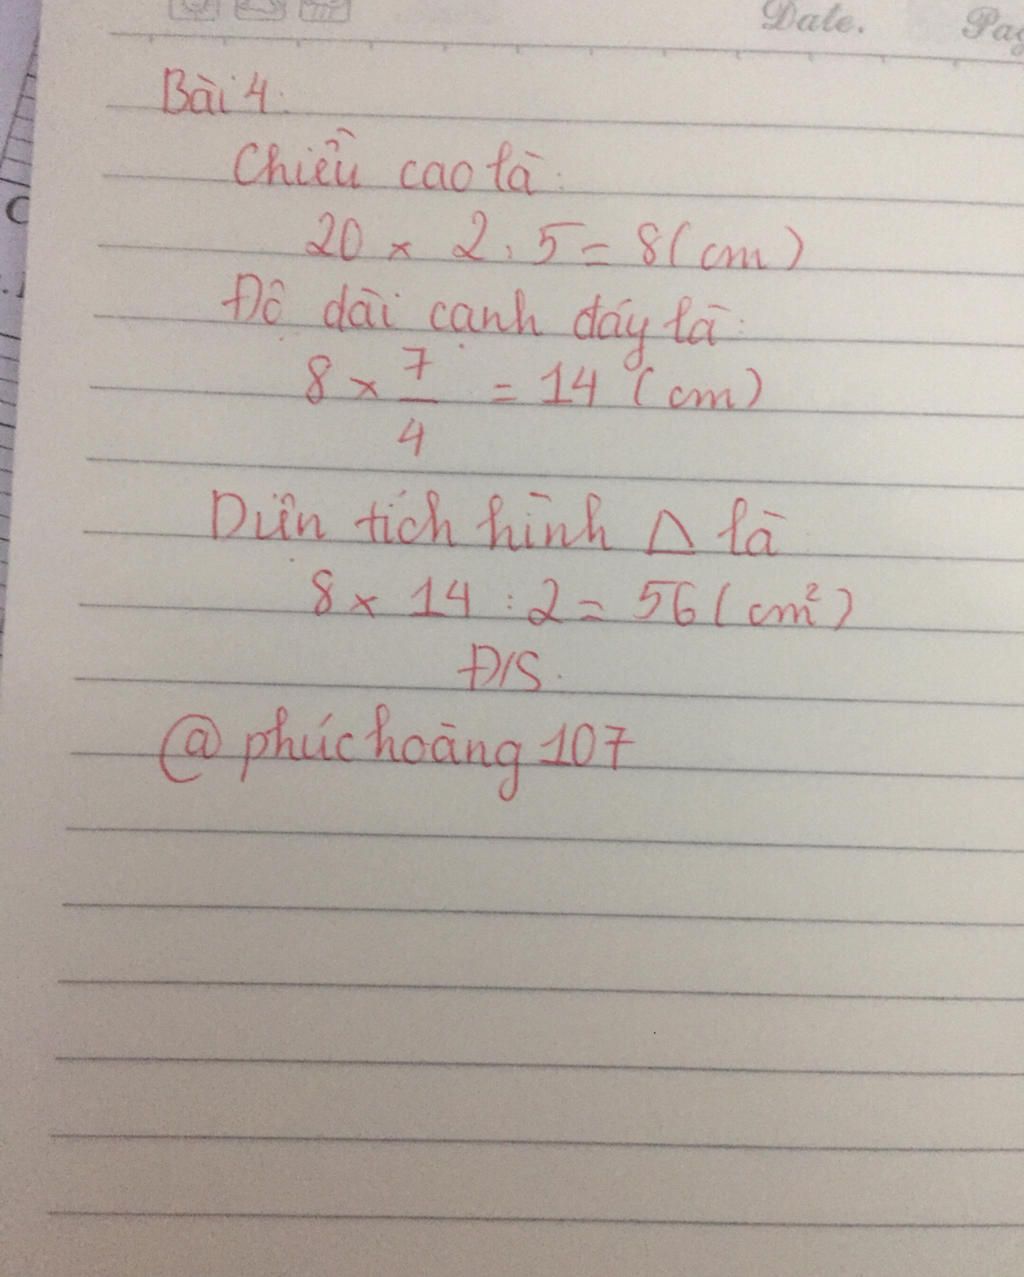 Date.
Bài 4:
Chiều cao là:
20 × 2 : 5 = 8 (cm)
Độ dài cạnh đáy là:
8 × 7/4 = 14 (cm)
Diện tích hình Δ là
8 × 14 : 2 = 56 (cm²)
Đ/S.
@phúchoàng107